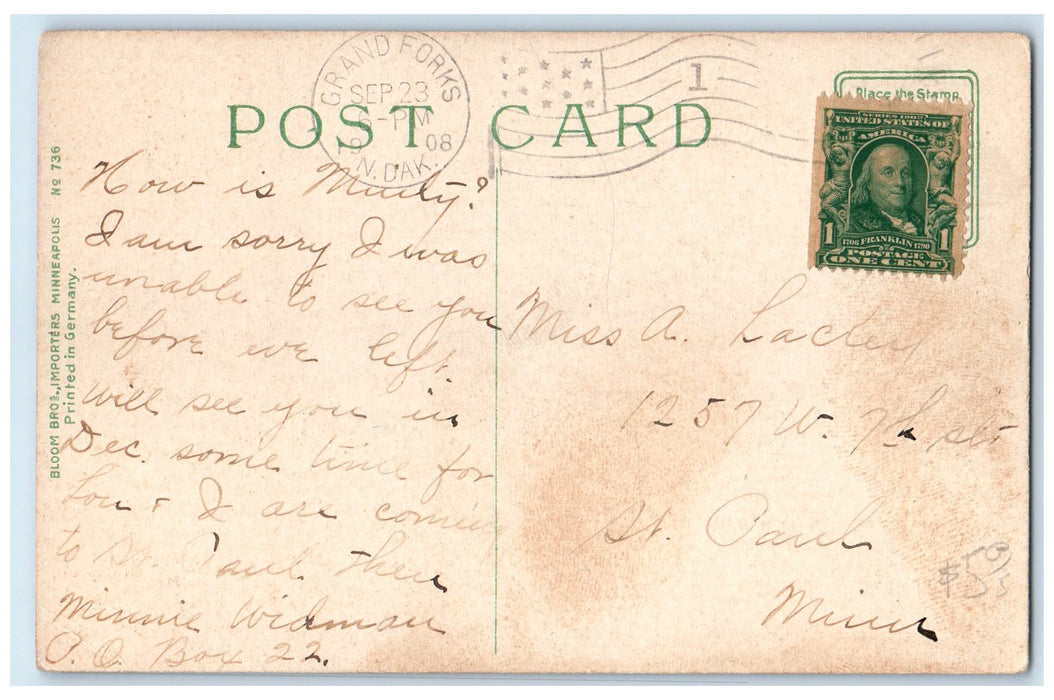 GRAND FORKS
SEP 23
6-PM
08
N. DAK.
1
POST CARD
Place the Stamp
SERIES 1902
UNITED STATES OF
AMERICA
1706 FRANKLIN 1790
1 POSTAGE 1
ONE CENT
BLOOM BROS., IMPORTERS MINNEAPOLIS No 736
Printed in Germany.
How is Minty?
I am sorry I was
unable to see you
before we left.
Will see you in
Dec. some time for
Lou & I are coming
to St. Paul then
Minnie Widman
P. O. Box 22.
Miss A. Lackey
1257 W. 7th str
St. Paul
Minn